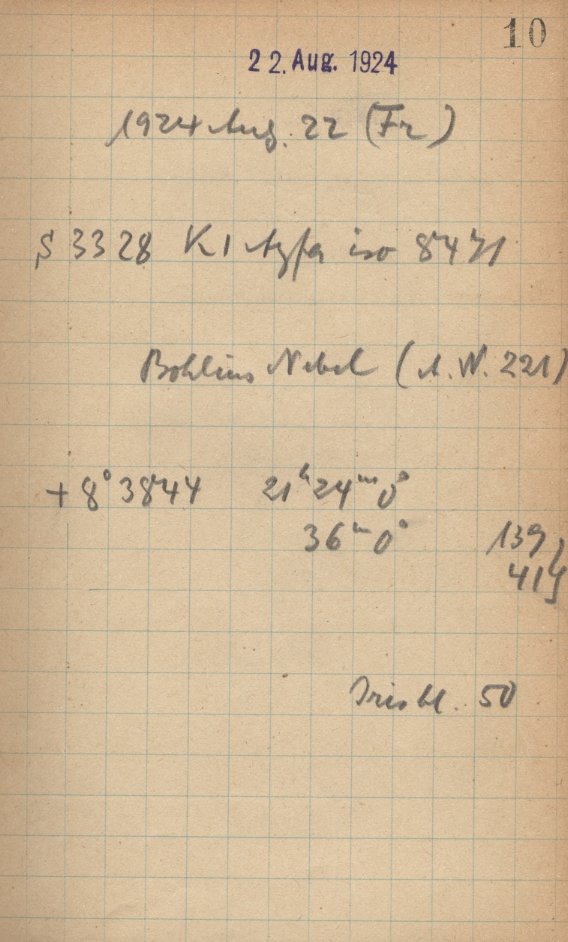 10
22. Aug. 1924
1924 Aug. 22 (Fr)
S 3328 Kl Agfa iso 8471
Bohlins Nebel (A.N. 221)
+8° 3844 21ʰ24ᵐ0ˢ
36ᵐ0ˢ 139
414
Irisbl. 50